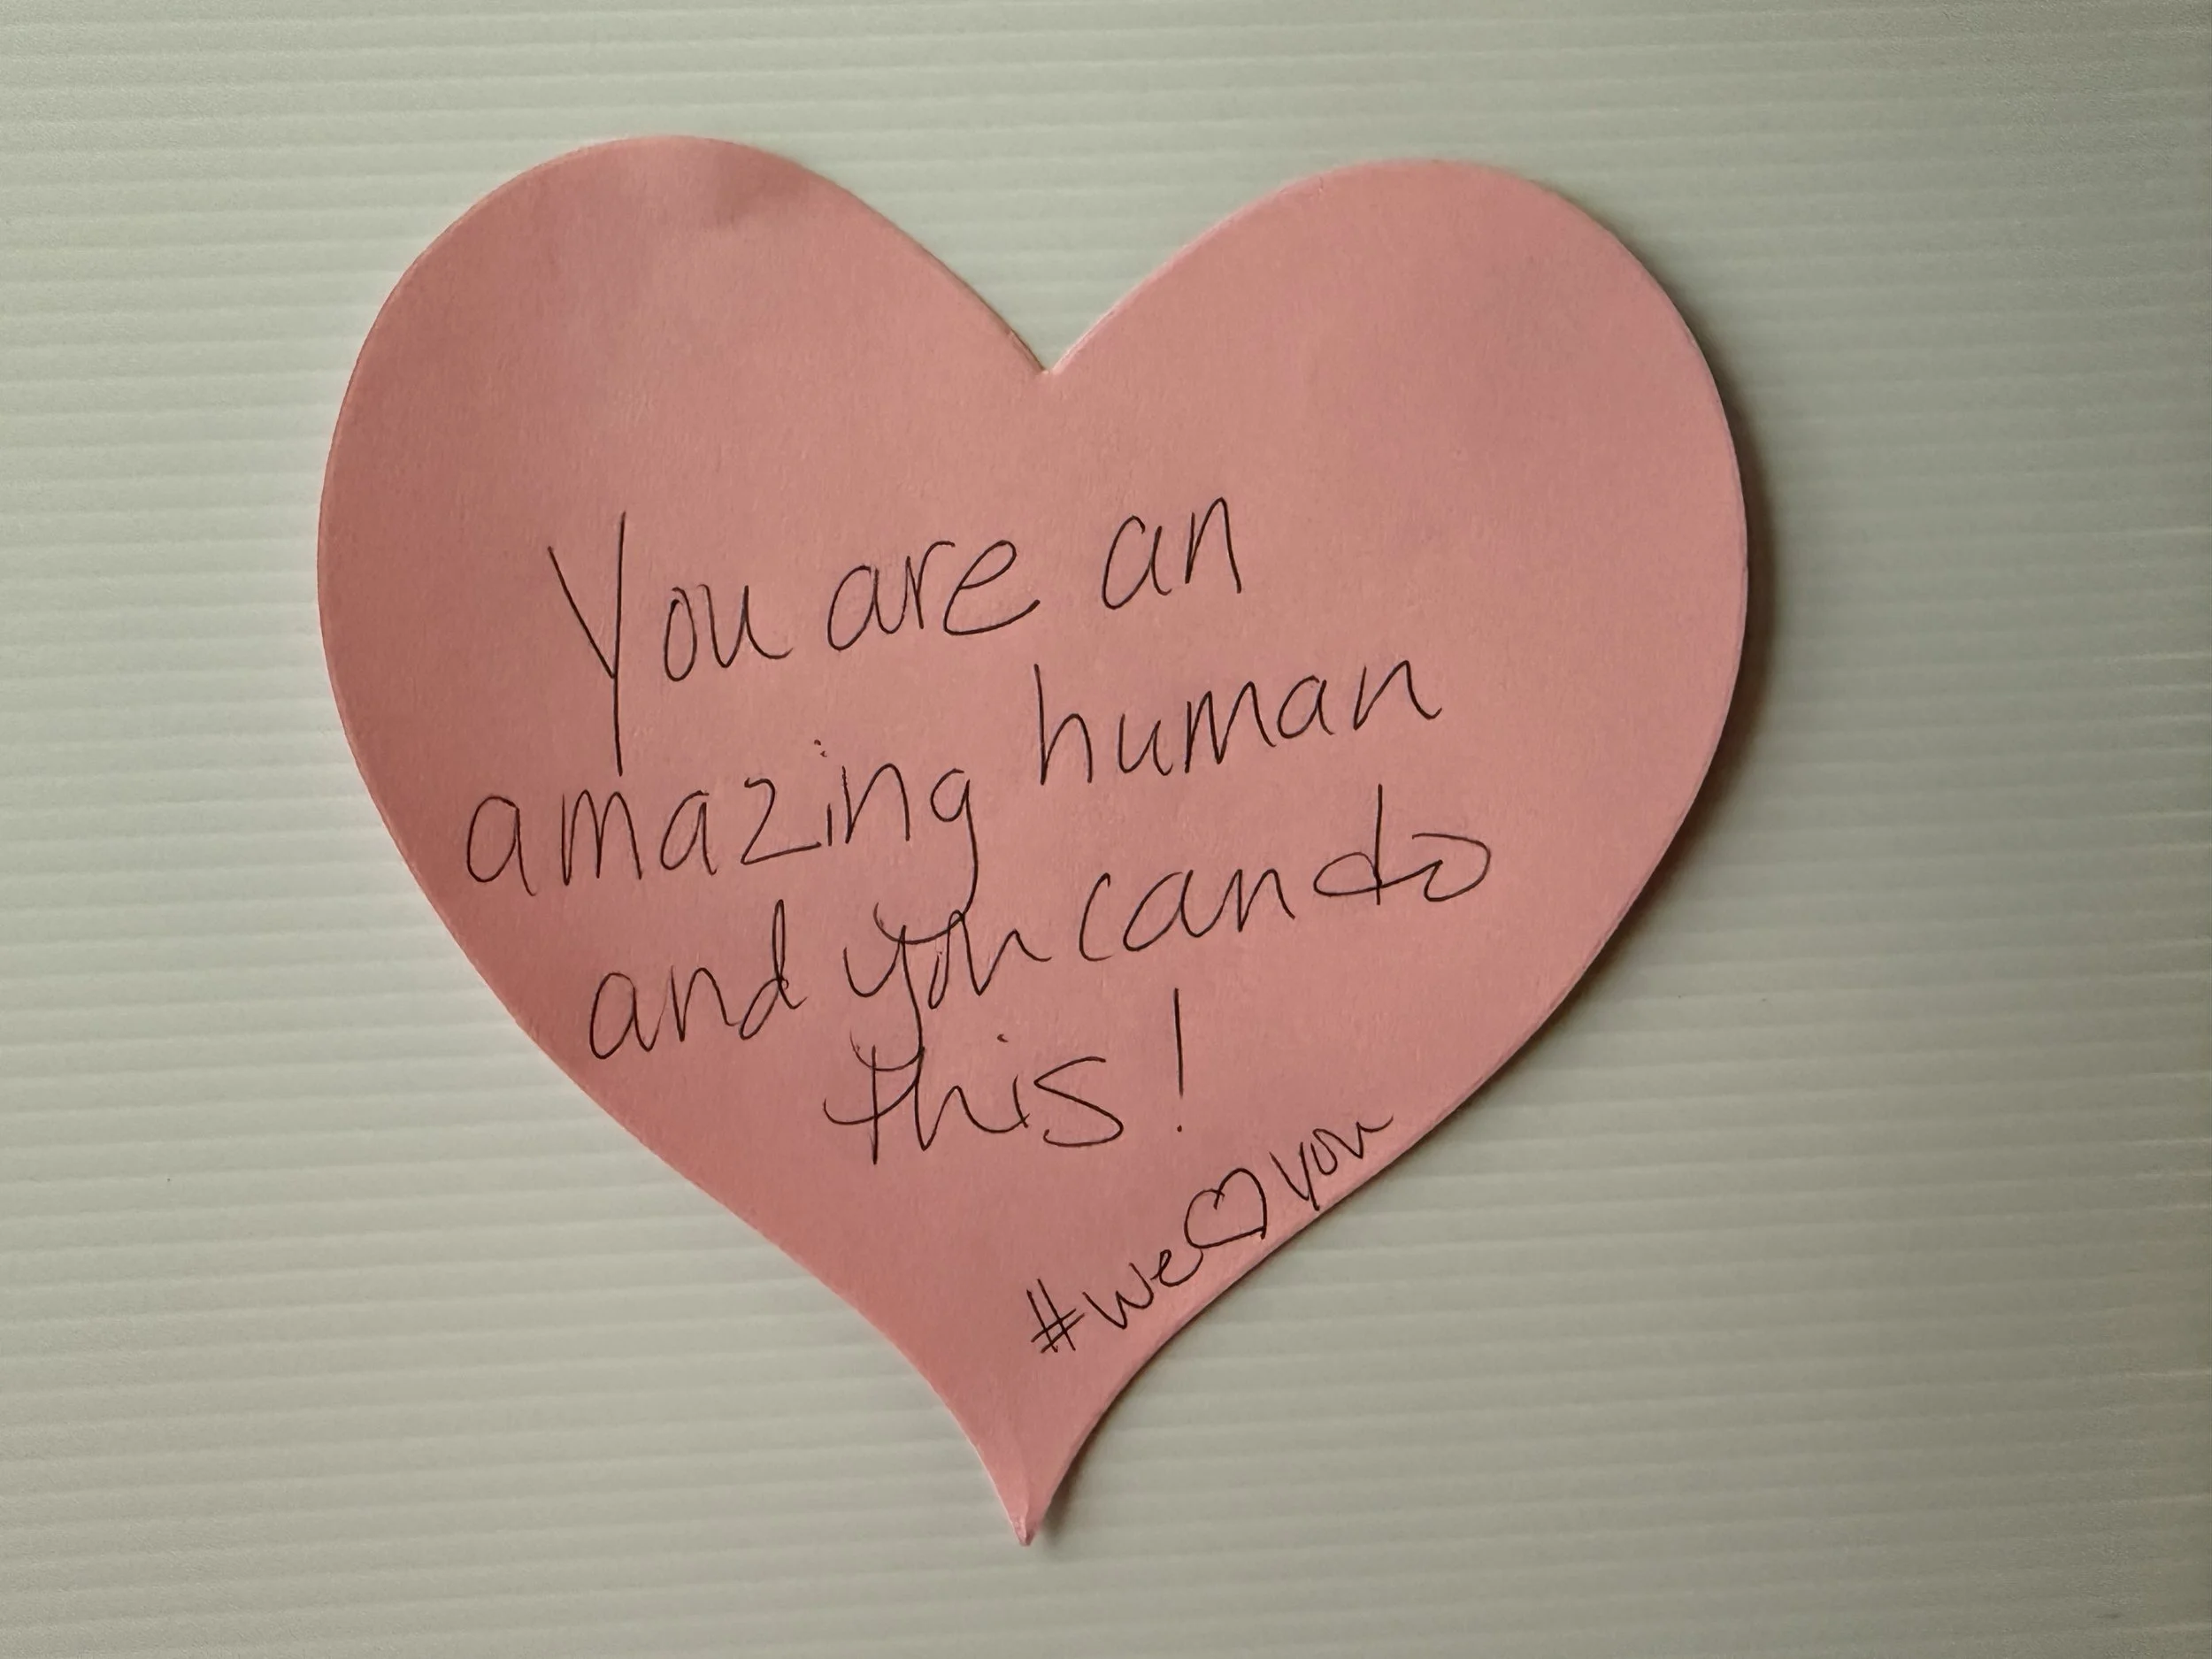 You are an
amazing human
and you can do
this!
#we♡you